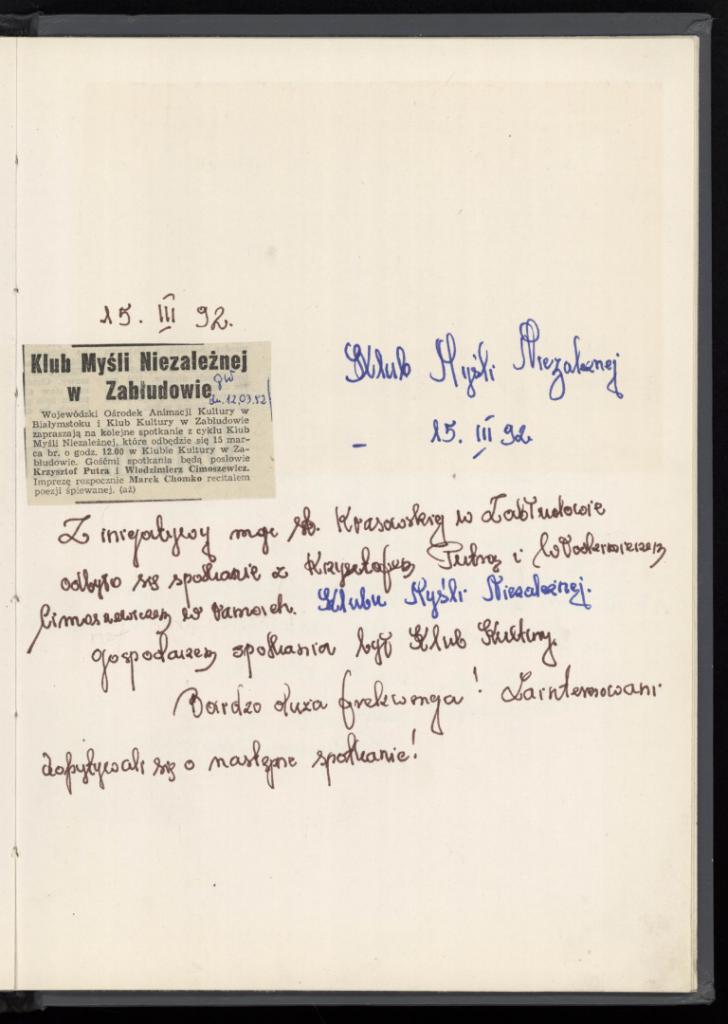 15. III 92.
Klub Myśli Niezależnej
w Zabłudowie
GW
dn. 12.03.92
Wojewódzki Ośrodek Animacji Kultury w
Białymstoku i Klub Kultury w Zabłudowie
zapraszają na kolejne spotkanie z cyklu Klub
Myśli Niezależnej, które odbędzie się 15 mar-
ca br. o godz. 12.00 w Klubie Kultury w Za-
błudowie. Gośćmi spotkania będą posłowie
Krzysztof Putra i Włodzimierz Cimoszewicz.
Imprezę rozpocznie Marek Chomko recitalem
poezji śpiewanej. (aż)
Klub Myśli Niezależnej
- 15. III 92
Z inicjatywy mgr Krasowskiej w Zabłudowie
odbyło się spotkanie z Krzysztofem Putrą i Włodzimierzem
Cimoszewiczem w ramach. Klubu Myśli Niezależnej.
Gospodarzem spotkania był Klub Kultury.
Bardzo duża frekwencja! Zainteresowani
dopytywali się o następne spotkanie!